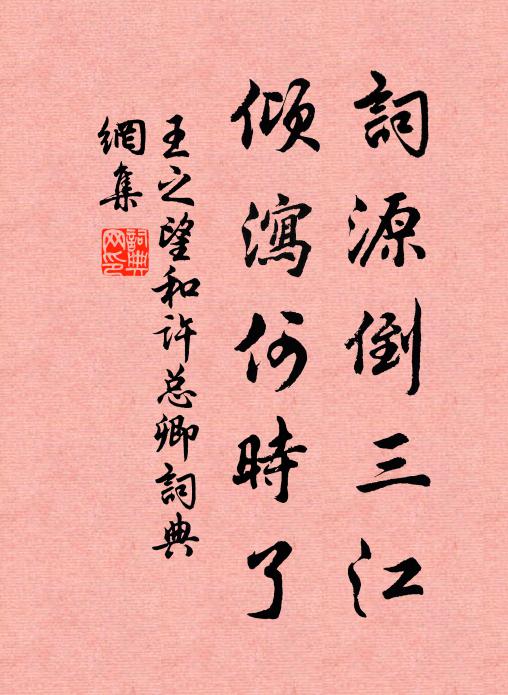 詞源倒三江
傾瀉何時了
王之望和許总卿詞典
網集
詞典網印